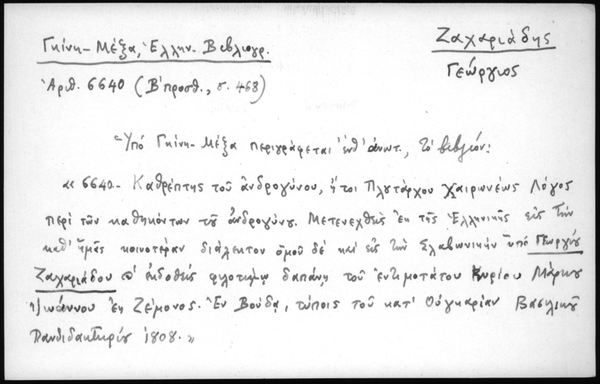 Γκίνη-Μέξα, Ἑλλην. Βιβλιογρ.
Ζαχαριάδης
Γεώργιος
Ἀριθ. 6640 (Β' προσθ., σ. 468)
Ὑπό Γκίνη-Μέξα περιγράφεται ἐνθ' ἀνωτ., τό βιβλίον:
« 6640- Καθρέπτης τοῦ ἀνδρογύνου, ἤτοι Πλουτάρχου Χαιρωνέως Λόγος
περί τῶν καθηκόντων τοῦ ἀνδρογύνου. Μετενεχθείς ἐκ τῆς Ἑλληνικῆς εἰς τήν
καθ' ἡμᾶς κοινοτέραν διάλεκτον ὁμοῦ δέ καί εἰς τήν Σλαβωνικήν ὑπό Γεωργίου
Ζαχαριάδου ἐκδοθείς φιλοτίμῳ δαπάνῃ τοῦ ἐντιμοτάτου Κυρίου Μάρκου
Ἰωάννου ἐκ Ζέμονος. Ἐν Βούδᾳ, τύποις τοῦ κατ' Οὐγκαρίαν Βασιλικοῦ
Πανδιδακτηρίου 1808. »